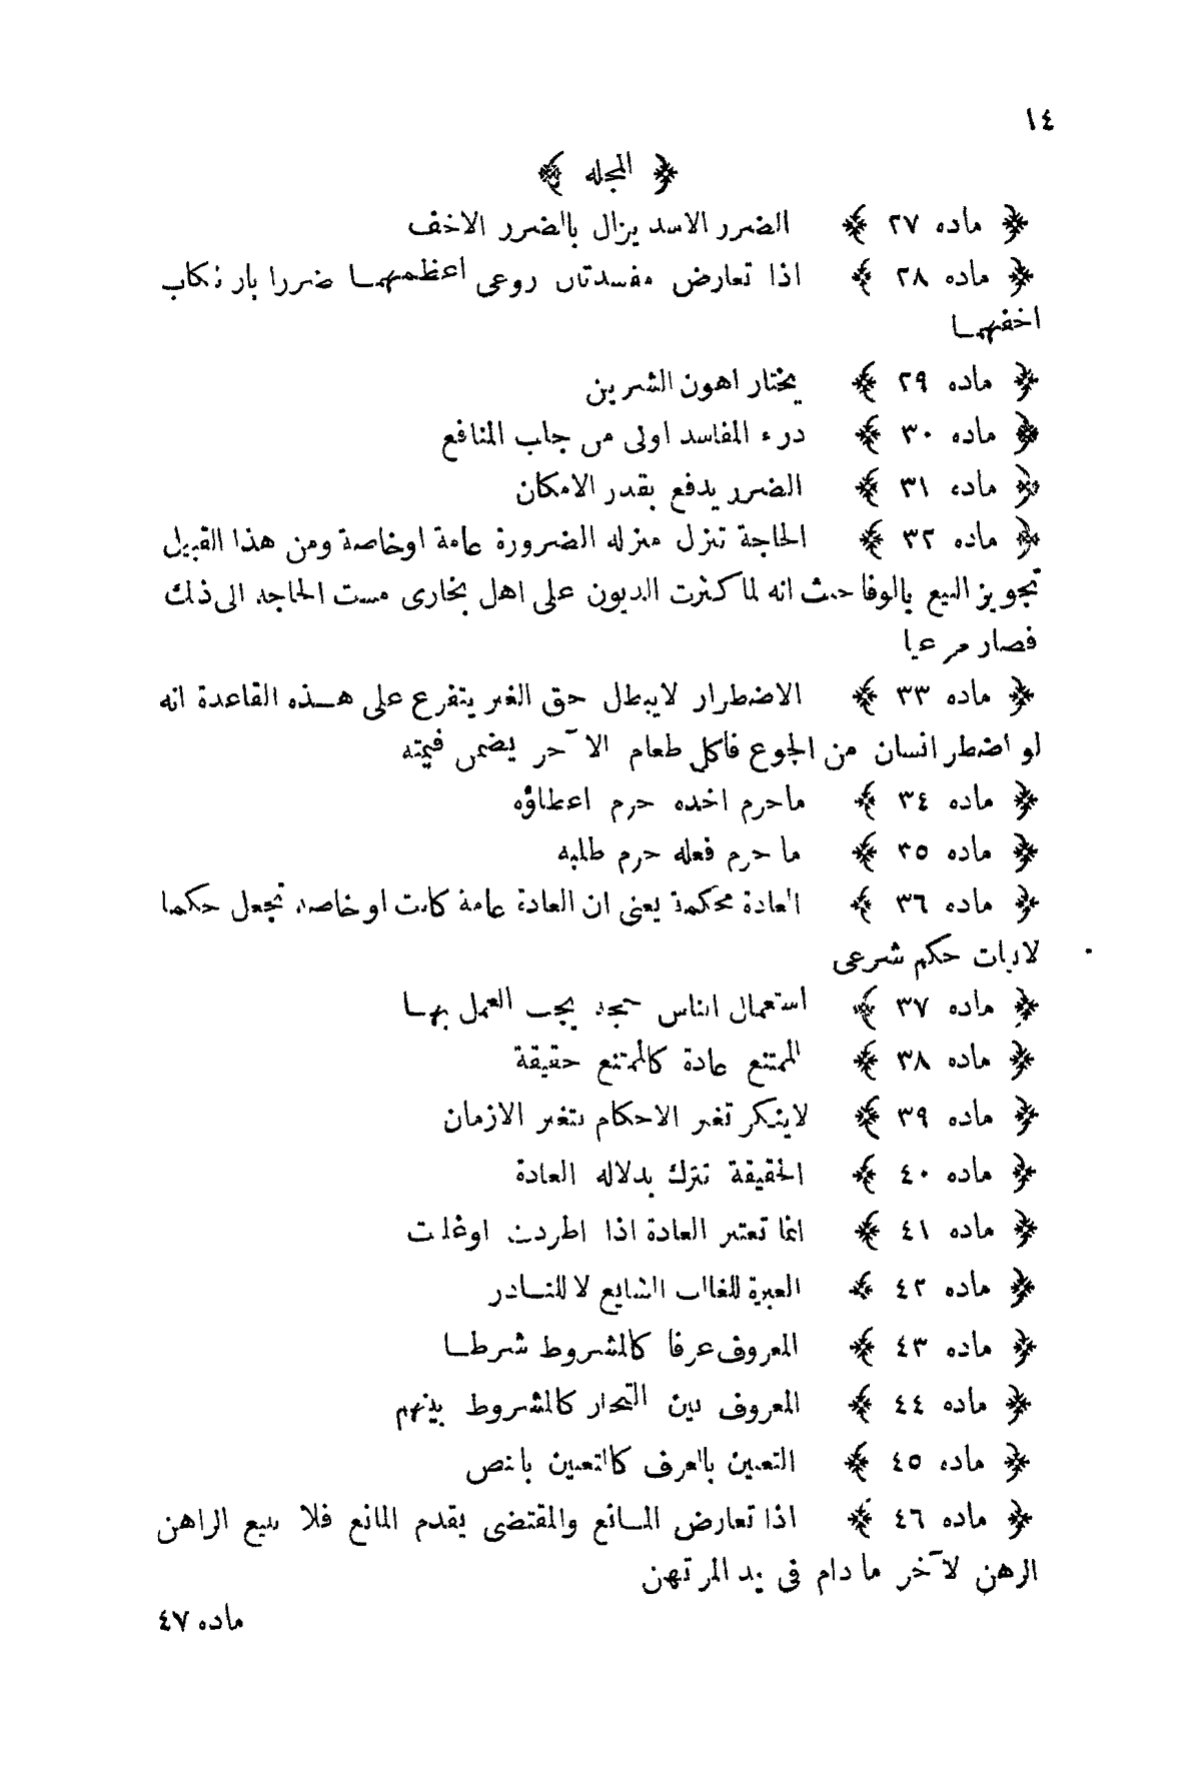 ١٤
﴿ المجله ﴾
﴿ ماده ٢٧ ﴾ الضرر الاشد يزال بالضرر الاخف
﴿ ماده ٢٨ ﴾ اذا تعارض مفسدتان روعى اعظمهما ضررا بارتكاب
اخفهما
﴿ ماده ٢٩ ﴾ يختار اهون الشرين
﴿ ماده ٣٠ ﴾ درء المفاسد اولى من جلب المنافع
﴿ ماده ٣١ ﴾ الضرر يدفع بقدر الامكان
﴿ ماده ٣٢ ﴾ الحاجة تنزل منزله الضرورة عامة اوخاصة ومن هذا القبيل
تجويز البيع بالوفا حيث انه لما كثرت الديون على اهل بخارى مست الحاجه الى ذلك
فصار مرعيا
﴿ ماده ٣٣ ﴾ الاضطرار لايبطل حق الغير يتفرع على هذه القاعدة انه
لو اضطر انسان من الجوع فاكل طعام الآخر يضمن قيمته
﴿ ماده ٣٤ ﴾ ماحرم اخده حرم اعطاؤه
﴿ ماده ٣٥ ﴾ ما حرم فعله حرم طلبه
﴿ ماده ٣٦ ﴾ العادة محكمة يعنى ان العادة عامة كانت او خاصه تجعل حكما
لاثبات حكم شرعى
﴿ ماده ٣٧ ﴾ استعمال الناس حجة يجب العمل بها
﴿ ماده ٣٨ ﴾ الممتنع عادة كالممتنع حقيقة
﴿ ماده ٣٩ ﴾ لاينكر تغير الاحكام بتغير الازمان
﴿ ماده ٤٠ ﴾ الحقيقة تترك بدلاله العادة
﴿ ماده ٤١ ﴾ انما تعتبر العادة اذا اطردت اوغلبت
﴿ ماده ٤٢ ﴾ العبرة للغالب الشايع لا للنادر
﴿ ماده ٤٣ ﴾ المعروف عرفا كالمشروط شرطا
﴿ ماده ٤٤ ﴾ المعروف بين التجار كالمشروط بينهم
﴿ ماده ٤٥ ﴾ التعيين بالعرف كالتعيين بالنص
﴿ ماده ٤٦ ﴾ اذا تعارض المانع والمقتضى يقدم المانع فلا يبيع الراهن
الرهن لآخر ما دام فى يد المرتهن
ماده ٤٧